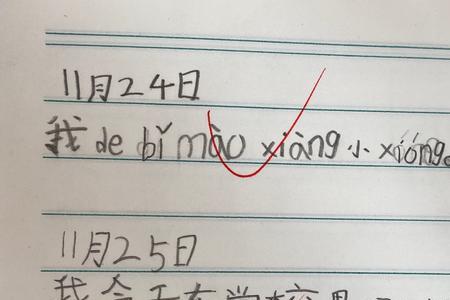 11月24日
我 de bǐ mào xiàng 小 xióng。
11月25日
我今天在学校里